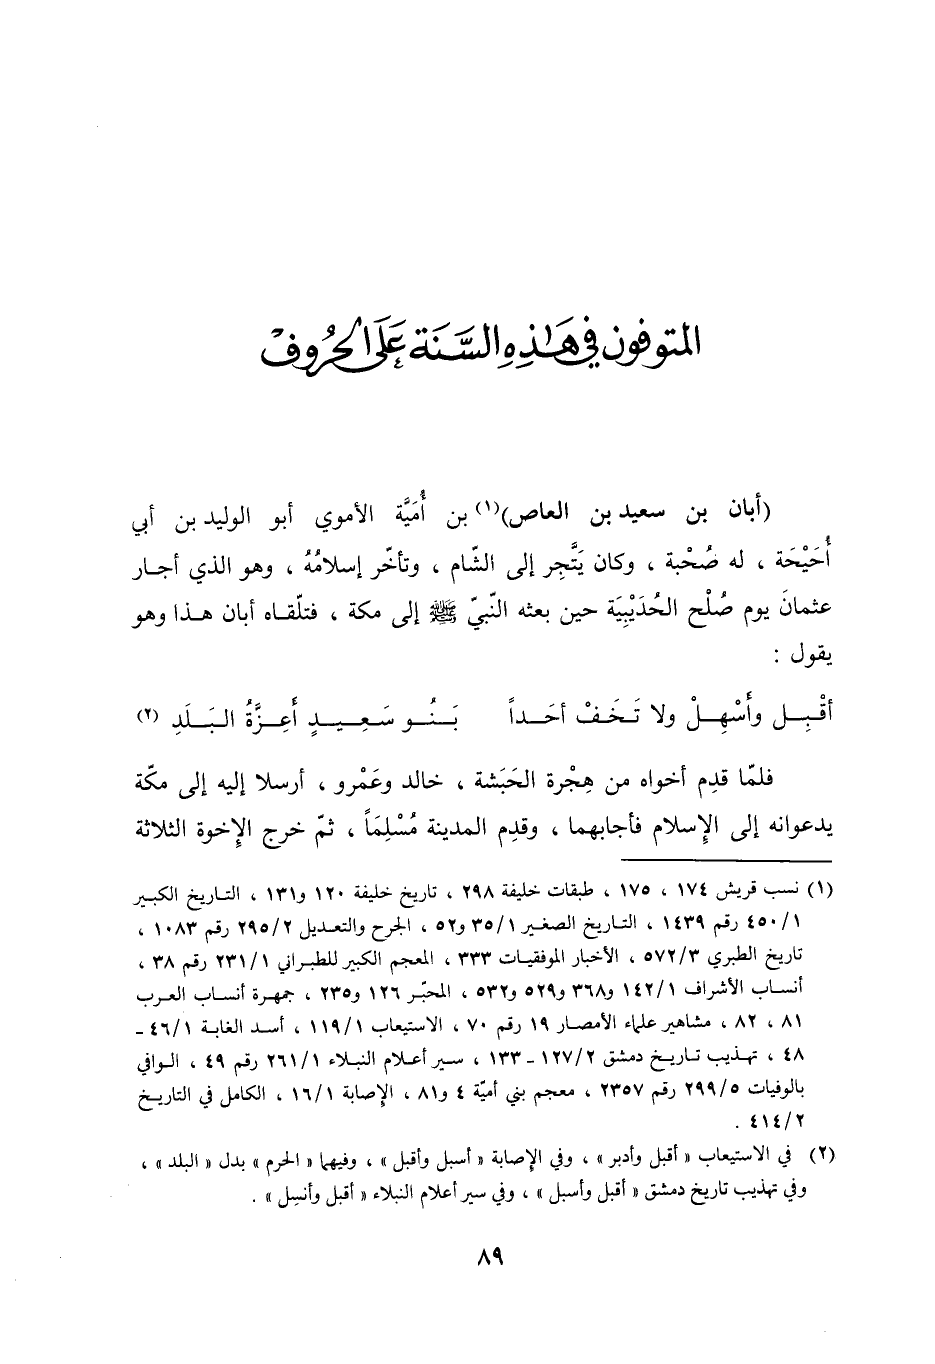 المتوفون في هَذِهِ السَّنَة عَلَى الحُروف
(أبان بن سعيد بن العاص)(١) بن أُمَيَّة الأموي أبو الوليد بن أبي
أُحَيْحَة ، له صُحْبة ، وكان يَتَّجِر إلى الشّام ، وتأخّر إسلامُهُ ، وهو الذي أجار
عثمانَ يوم صُلْح الحُدَيْبِيَة حين بعثه النّبيّ ﷺ إلى مكة ، فتلّقاه أبان هذا وهو
يقول :
أقْبِل وأَسْهِلْ ولا تَخَفْ أحَداً بَنُو سَعِيدٍ أَعِزَّةُ البَلَدِ (٢)
فلمّا قدِم أخواه من هِجْرة الحَبَشة ، خالد وعَمْرو ، أرسلا إليه إلى مكّة
يدعوانه إلى الإسلام فأجابهما ، وقدِم المدينة مُسْلِمَاً ، ثمّ خرج الإخوة الثلاثة
(١) نسب قريش ١٧٤ ، ١٧٥ ، طبقات خليفة ٢٩٨ ، تاريخ خليفة ١٢٠ و١٣١ ، التاريخ الكبير
٤٥٠/١ رقم ١٤٣٩ ، التاريخ الصغير ٣٥/١ و٥٢ ، الجرح والتعديل ٢٩٥/٢ رقم ١٠٨٣ ،
تاريخ الطبري ٥٧٢/٣ ، الأخبار الموفقيات ٣٣٣ ، المعجم الكبير للطبراني ٢٣١/١ رقم ٣٨ ،
أنساب الأشراف ١٤٢/١ و٣٦٨ و٥٢٩ و٥٣٢ ، المحبّر ١٢٦ و٢٣٥ ، جمهرة أنساب العرب
٨١ ، ٨٢ ، مشاهير علماء الأمصار ١٩ رقم ٧٠ ، الاستيعاب ١١٩/١ ، أسد الغابة ٤٦/١ -
٤٨ ، تهذيب تاريخ دمشق ١٢٧/٢ - ١٣٣ ، سير أعلام النبلاء ٢٦١/١ رقم ٤٩ ، الوافي
بالوفيات ٢٩٩/٥ رقم ٢٣٥٧ ، معجم بني أميّة ٤ و٨١ ، الإصابة ١٦/١ ، الكامل في التاريخ
٤١٤/٢ .
(٢) في الاستيعاب « أقبل وأدبر » ، وفي الإصابة « أسبل وأقبل » ، وفيهما « الحرم » بدل « البلد » ،
وفي تهذيب تاريخ دمشق « أقبل وأسبل » ، وفي سير أعلام النبلاء « أقبل وأنسِل » .
٨٩